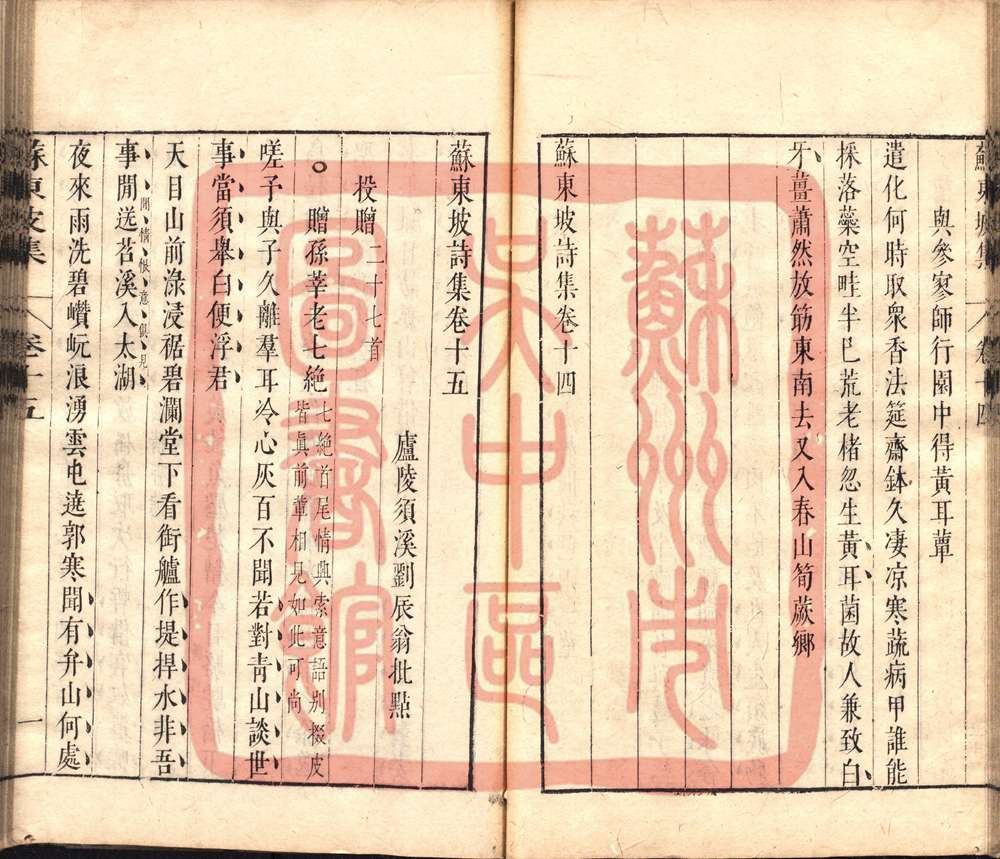 蘇東坡集 卷十四
與參寥師行園中得黃耳蕈
遣化何時取衆香法筵齋鉢久凄凉寒蔬病甲誰能
採落蘂空畦半已荒老楮忽生黃耳菌故人兼致白
牙薑蕭然放筋東南去又入春山筍蕨鄉
蘇東坡詩集卷十四
蘇東坡詩集卷十五
廬陵須溪劉辰翁批點
投贈二十七首
贈孫莘老七絶
七絶首尾情興索意語别掇皮
皆眞前輩相見如此可尚
嗟予與子久離羣耳冷心灰百不聞若對青山談世
事當須舉白便浮君
天目山前淥浸裾碧瀾堂下看銜艫作堤捍水非吾
事閒送苕溪入太湖
閒情恨意俱見
夜來雨洗碧巑岏浪湧雲屯遶郭寒聞有弁山何處
蘇東坡集 卷十五 一
蘇州市
吴中區
圖書館